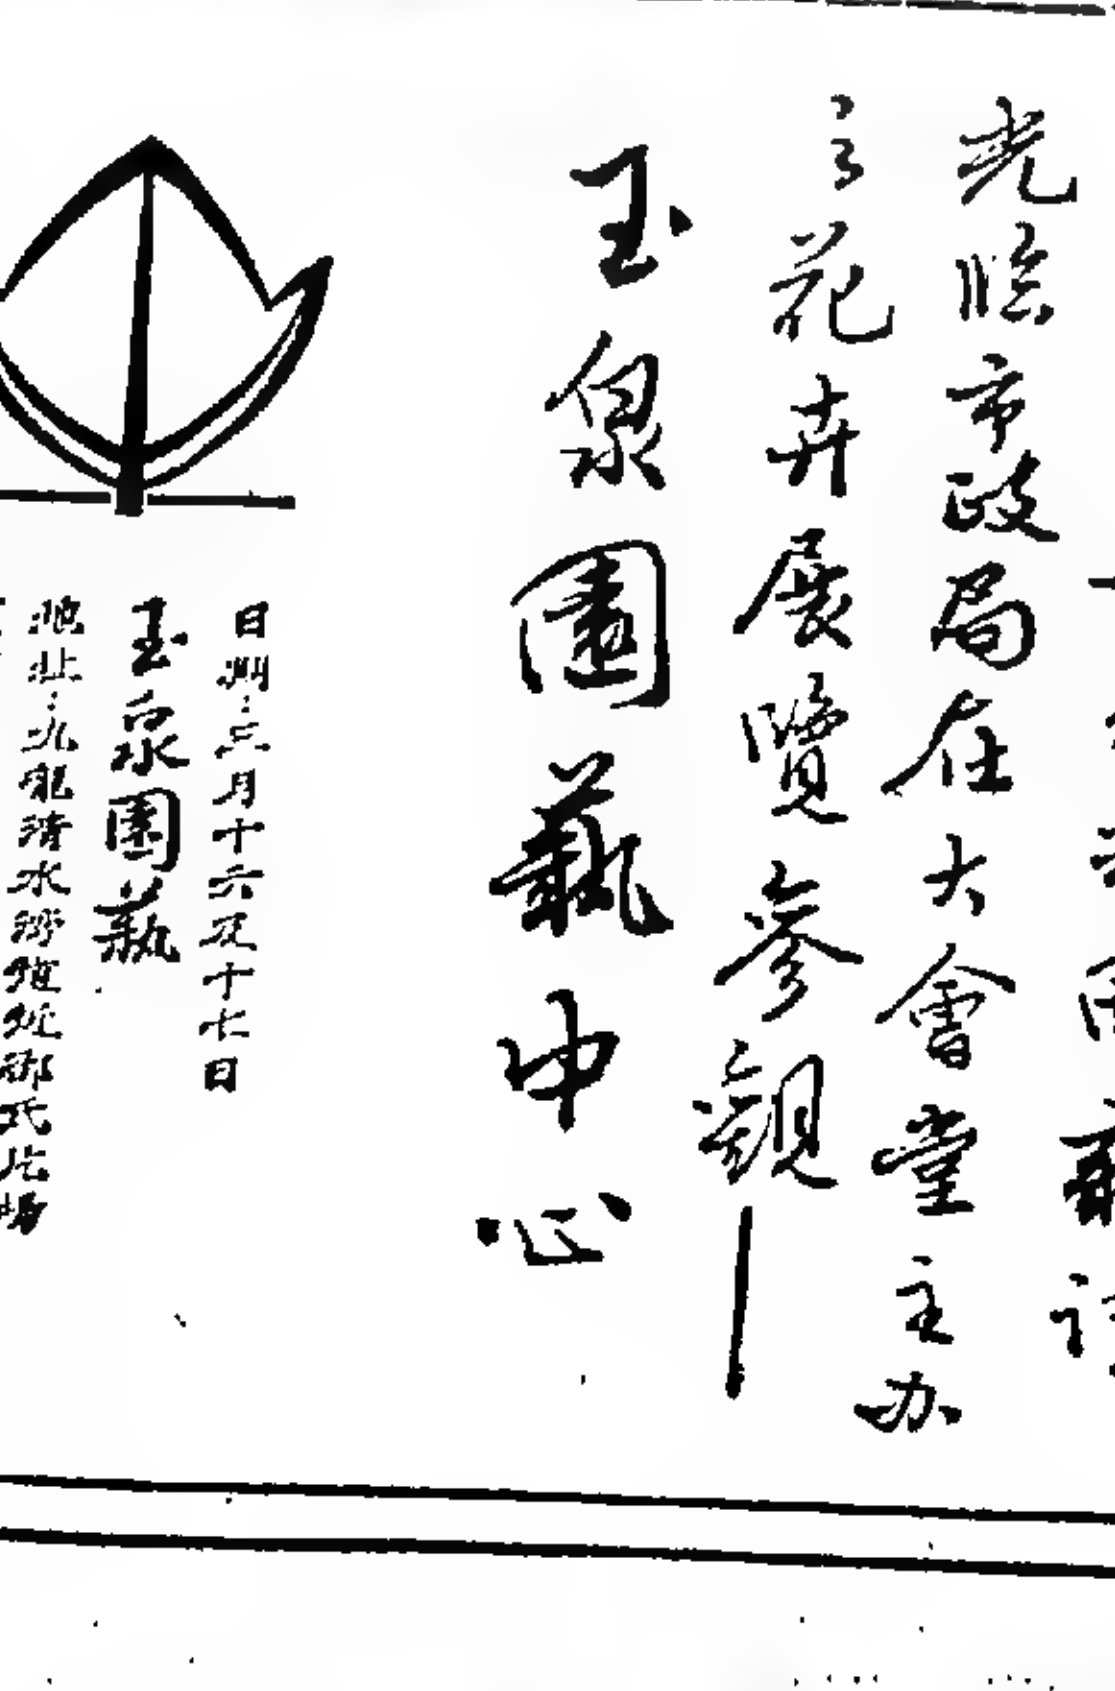 光臨市政局在大會堂主办
之花卉展覽參觀
玉泉園藝中心
日期：三月十六及十七日
玉泉園藝
地址：九龍清水湾道邨氏片場